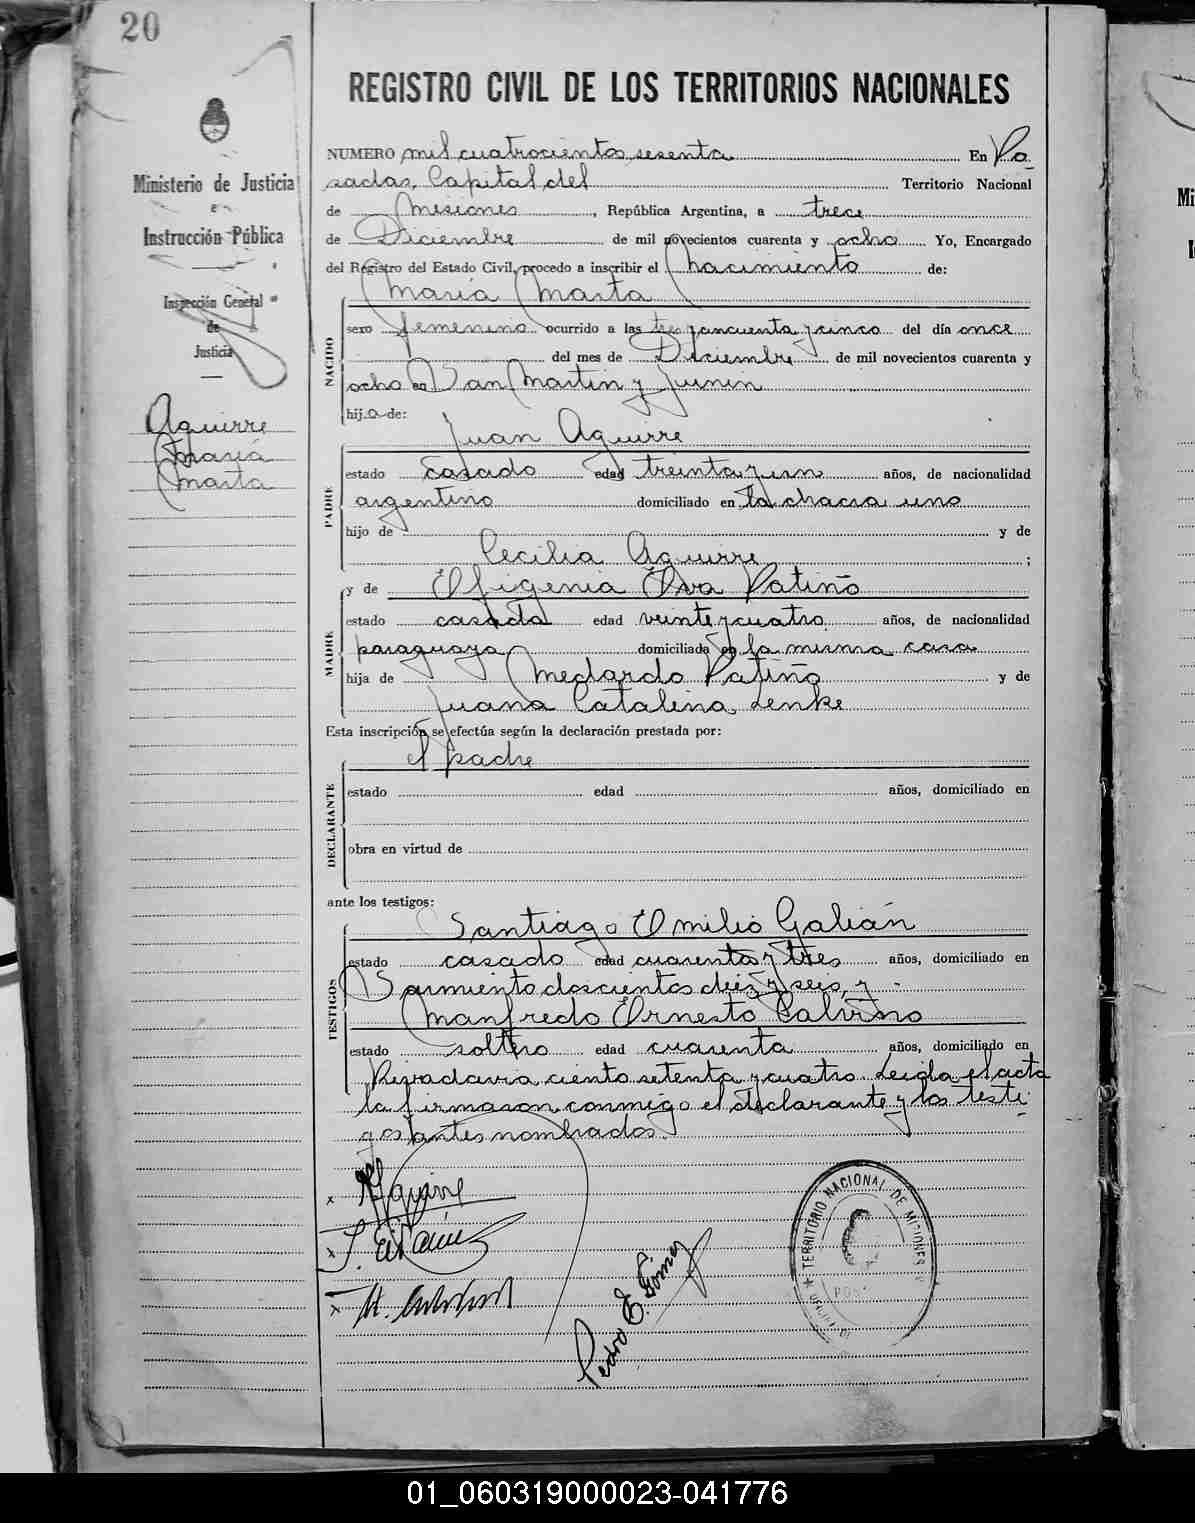 20
REGISTRO CIVIL DE LOS TERRITORIOS NACIONALES
Ministerio de Justicia
e
Instrucción Pública
Inspección General
de
Justicia
Aguirre
María
Marta
NUMERO mil cuatrocientos sesenta En Po
sadas, Capital del Territorio Nacional
de Misiones, República Argentina, a trece
de Diciembre de mil novecientos cuarenta y ocho Yo, Encargado
del Registro del Estado Civil, procedo a inscribir el nacimiento de:
María Marta
NACIDO
sexo femenino ocurrido a las tres y cincuenta y cinco del día once
del mes de Diciembre de mil novecientos cuarenta y
ocho en San Martin y Junin
hija de:
Juan Aguirre
PADRE
estado casado edad treinta y un años, de nacionalidad
argentino domiciliado en la chacra uno
hijo de y de
Cecilia Aguirre ;
y de Efigenia Elva Patiño
MADRE
estado casada edad veinte y cuatro años, de nacionalidad
paraguaya domiciliada en la misma casa
hija de Medardo Patiño y de
Juana Catalina Lenke
Esta inscripción se efectúa según la declaración prestada por:
el padre
DECLARANTE
estado edad años, domiciliado en
obra en virtud de
ante los testigos:
Santiago Emilio Galián
TESTIGOS
estado casado edad cuarenta y tres años, domiciliado en
Sarmiento doscientos diez y seis, y
Manfredo Ernesto
estado soltero edad cuarenta años, domiciliado en
Rivadavia ciento setenta y cuatro. Leída el acta
la firmaron conmigo el declarante y los testi
gos antes nombrados.
x Aguirre
x
x
Pedro E. Gómez
TERRITORIO NACIONAL DE MISIONES
01_060319000023-041776